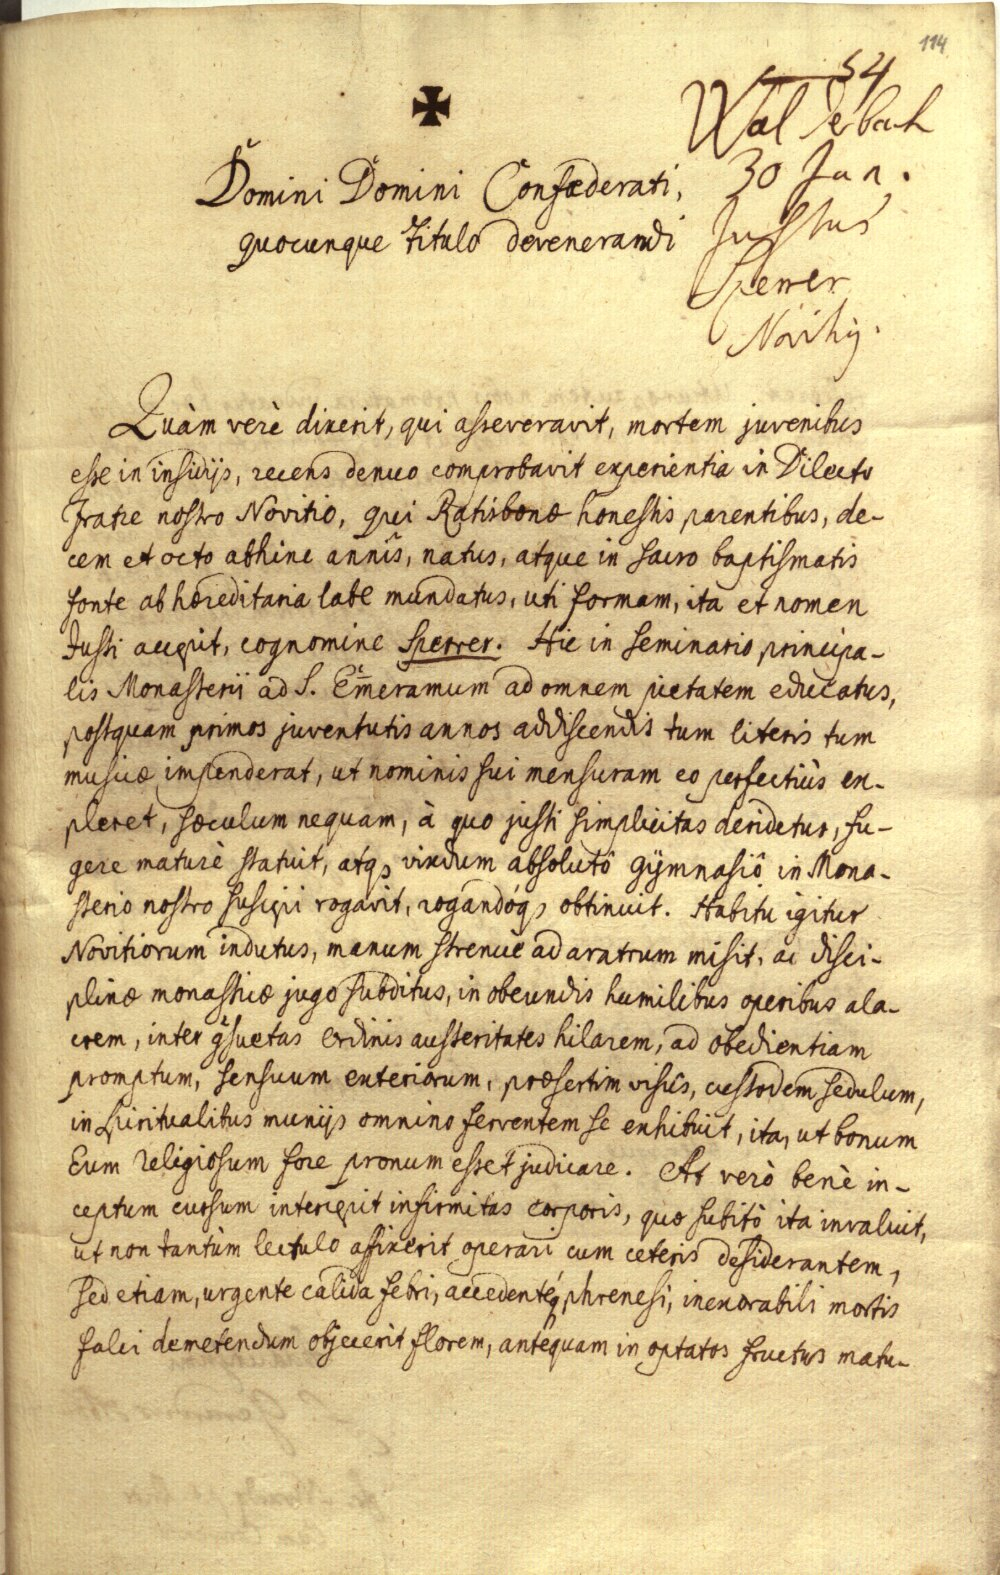 114
54
Walderbach
30 Jun.
Justus
Sperrer
Novitij.
✠
Domini Domini Confœderati,
quocunque titulo devenerandi
Quàm verè dixerit, qui asseveravit, mortem juvenibus
esse in insidijs, recens denuo comprobavit experientia in Dilecto
Fratre nostro Novitio, qui Ratisbonæ honestis parentibus, de-
cem et octo abhinc annis, natus, atque in sacro baptismatis
fonte ab hæreditaria labe mundatus, uti formam, ita et nomen
Justi accepit, cognomine Sperrer. Hic in seminario principa-
lis Monasterij ad S. Em̄eramum ad omnem pietatem educatus,
postquam primos juventutis annos addiscendis tum literis tum
musicæ impenderat, ut nominis sui mensuram eo perfectiùs ex-
pleret, sæculum nequam, à quo justi simplicitas deridetur, fu-
gere maturè statuit, atq3 vixdum absolutô Gÿmnasiô in Mona-
sterio nostro suscipi rogavit, rogandóq3 obtinuit. Habitu igitur
Novitiorum indutus, manum strenuè ad aratrum misit, ac disci-
plinæ monasticæ jugo subditus, in obeundis humilibus operibus ala-
crem, inter q̃suetas ordinis austeritates hilarem, ad obedientiam
promptum, sensuum exteriorum, præsertim visûs, custodem sedulum,
in spiritualibus munijs omnino ferventem se exhibuit, ita, ut bonum
Eum religiosum fore pronum esset judicare. At verò benè in-
ceptum cursum intercepit infirmitas corporis, quæ subitò ita invaluit,
ut non tantùm lectulo affixerit operari cum ceteris desiderantem,
sed etiam, urgente calida febri, accedentéq3 phrenesi, inexorabili mortis
falci demetendum objecerit florem, antequam in optatos fructus matu-